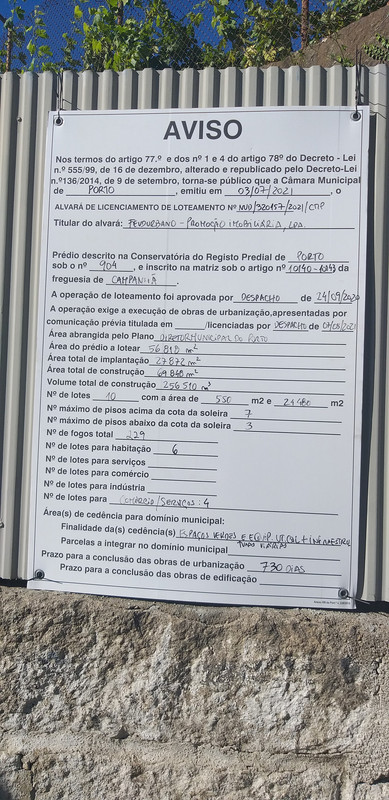 AVISO
Nos termos do artigo 77.º e dos nº 1 e 4 do artigo 78º do Decreto - Lei
n.º 555/99, de 16 de dezembro, alterado e republicado pelo Decreto-Lei
n.º136/2014, de 9 de setembro, torna-se público que a Câmara Municipal
de PORTO, emitiu em 03/07/2021, o
ALVARÁ DE LICENCIAMENTO DE LOTEAMENTO Nº NUD/320157/2021/CMP
Titular do alvará: - PROMOÇÃO IMOBILIÁRIA, LDA.
Prédio descrito na Conservatória do Registo Predial de PORTO
sob o nº 904, e inscrito na matriz sob o artigo nº 10140 - da
freguesia de CAMPANHÃ.
A operação de loteamento foi aprovada por DESPACHO de 24/09/2020
A operação exige a execução de obras de urbanização,apresentadas por
comunicação prévia titulada em /licenciadas por DESPACHO de /2021
Área abrangida pelo Plano DIRETOR MUNICIPAL DO PORTO
Área do prédio a lotear 56.818 m²
Área total de implantação 27.872 m²
Área total de construção 69.848 m²
Volume total de construção 256 510 m³
Nº de lotes 10 com a área de 550 m2 e 21 480 m2
Nº máximo de pisos acima da cota da soleira 7
Nº máximo de pisos abaixo da cota da soleira 3
Nº de fogos total 229
Nº de lotes para habitação 6
Nº de lotes para serviços
Nº de lotes para comércio
Nº de lotes para indústria
Nº de lotes para COMÉRCIO/SERVIÇOS: 4
Área(s) de cedência para domínio municipal:
Finalidade da(s) cedência(s) ESPAÇOS VERDES E EQUIP. UT. COL +
Parcelas a integrar no domínio municipal
Prazo para a conclusão das obras de urbanização 730 DIAS
Prazo para a conclusão das obras de edificação